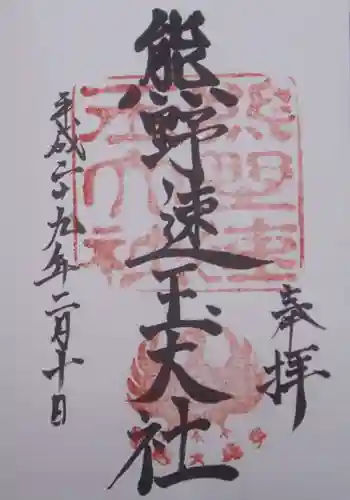 奉拝
熊野速玉大社
平成二十九年二月十日